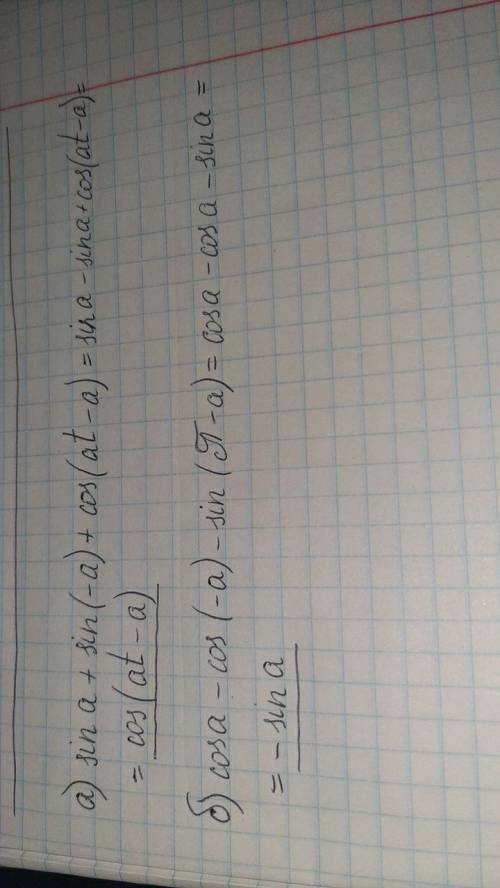 а) sin a + sin(-a) + cos(at - a) = sin a - sin a + cos(at - a) =
= cos(at - a)
б) cos a - cos(-a) - sin(π - a) = cos a - cos a - sin a =
= - sin a